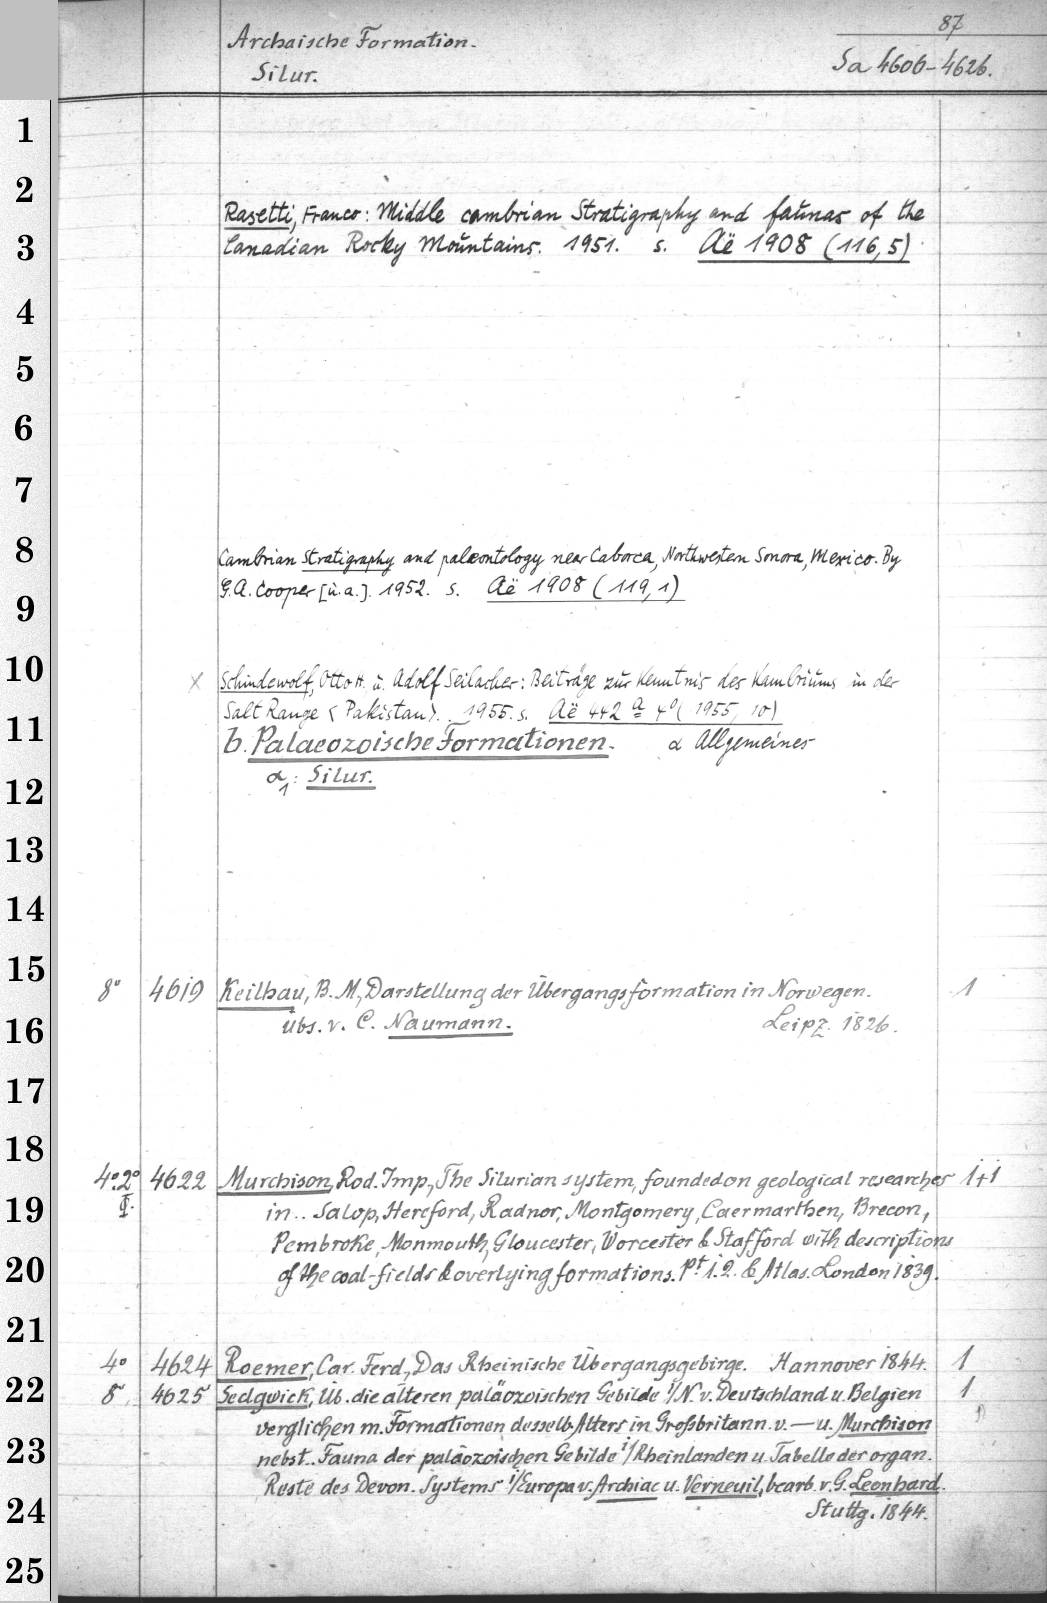 87
Archaische Formation.
Silur.
Sa 4606-4626.
1
2
Rasetti, Franco: Middle cambrian Stratigraphy and faunas of the
3
Canadian Rocky Mountains. 1951. s. Aë 1908 (116,5)
4
5
6
7
8
Cambrian Stratigraphy and palæontology near Caborca, Northwestern Sonora, Mexico. By
G.A. Cooper [u.a.]. 1952. s. Aë 1908 (119,1)
9
10
x Schindewolf, Otto H. u. Adolf Seilacher: Beiträge zur Kenntnis des Kambriums in der
Salt Range <Pakistan>. 1955. s. Aë 442 a 4° (1955, 10)
11
b. Palaeozoische Formationen. α Allgemeines
α1: Silur.
12
13
14
15
8° 4619 Keilhau, B. M., Darstellung der Übergangsformation in Norwegen. 1
16
übs. v. C. Naumann. Leipz. 1826.
17
18
4°.2° 4622 Murchison, Rod. Imp., The Silurian system, founded on geological researches 1+1
19
I. in.. Salop, Hereford, Radnor, Montgomery, Caermarthen, Brecon,
Pembroke, Monmouth, Gloucester, Worcester & Stafford with descriptions
20
of the coal-fields & overlying formations. Pt 1.2. & Atlas. London 1839.
21
4° 4624 Roemer, Car. Ferd., Das Rheinische Übergangsgebirge. Hannover 1844. 1
22
8° 4625 Sedgwick, Üb. die älteren paläozoischen Gebilde i/N. v. Deutschland u. Belgien 1
verglichen m. Formationen desselb. Alters in Großbritann. v. — u. Murchison
23
nebst.. Fauna der paläozoischen Gebilde i/Rheinlanden u. Tabelle der organ.
Reste des Devon. Systems i/Europa v. Archiac u. Verneuil, bearb. v. G. Leonhard.
24
Stuttg. 1844.
25